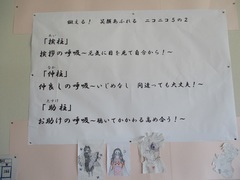 鍛える！　笑顔あふれる　ニコニコ３の２
「挨柱」
挨拶の呼吸～元気に目を見て自分から！～
なか
「仲柱」
仲良しの呼吸～いじめなし　間違っても大丈夫！～
「助柱」
お助けの呼吸～聴いてかかわる高め合う！～